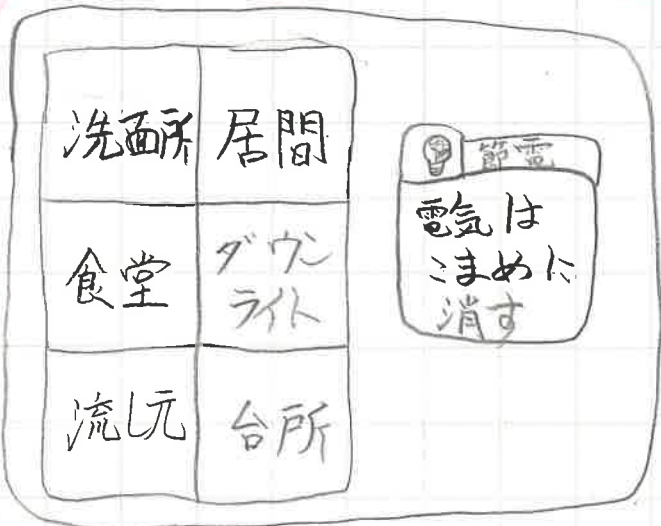 洗面所 居間
食堂 ダウン
ライト
流し元 台所
節電
電気は
こまめに
消す